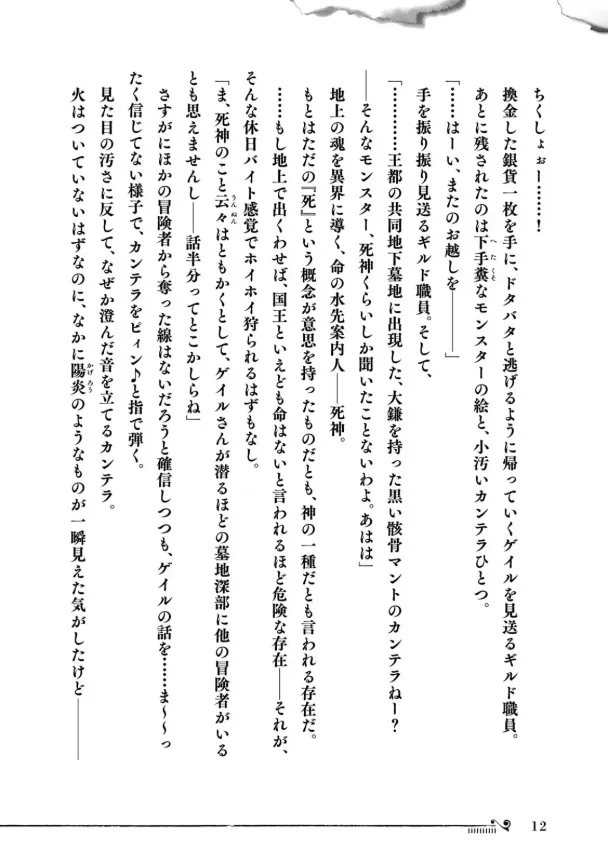 ちくしょぉー……！
換金した銀貨一枚を手に、ドタバタと逃げるように帰っていくゲイルを見送るギルド職員。
あとに残されたのは下手糞なモンスターの絵と、小汚いカンテラひとつ。
へたくそ
「……はーい、またのお越しを――――」
手を振り振り見送るギルド職員。そして、
「…………王都の共同地下墓地に出現した、大鎌を持った黒い骸骨マントのカンテラねー？
――そんなモンスター、死神くらいしか聞いたことないわよ。あはは」
地上の魂を異界に導く、命の水先案内人――死神。
もとはただの『死』という概念が意思を持ったものだとも、神の一種だとも言われる存在だ。
……もし地上で出くわせば、国王といえども命はないと言われるほど危険な存在――それが、
そんな休日バイト感覚でホイホイ狩られるはずもなし。
「ま、死神のこと云々はともかくとして、ゲイルさんが潜るほどの墓地深部に他の冒険者がいる
うんぬん
とも思えませんし――話半分ってとこかしらね」
さすがにほかの冒険者から奪った線はないだろうと確信しつつも、ゲイルの話を……ま～～っ
たく信じてない様子で、カンテラをピィン♪と指で弾く。
見た目の汚さに反して、なぜか澄んだ音を立てるカンテラ。
火はついていないはずなのに、なかに陽炎のようなものが一瞬見えた気がしたけど――――
かげろう
12